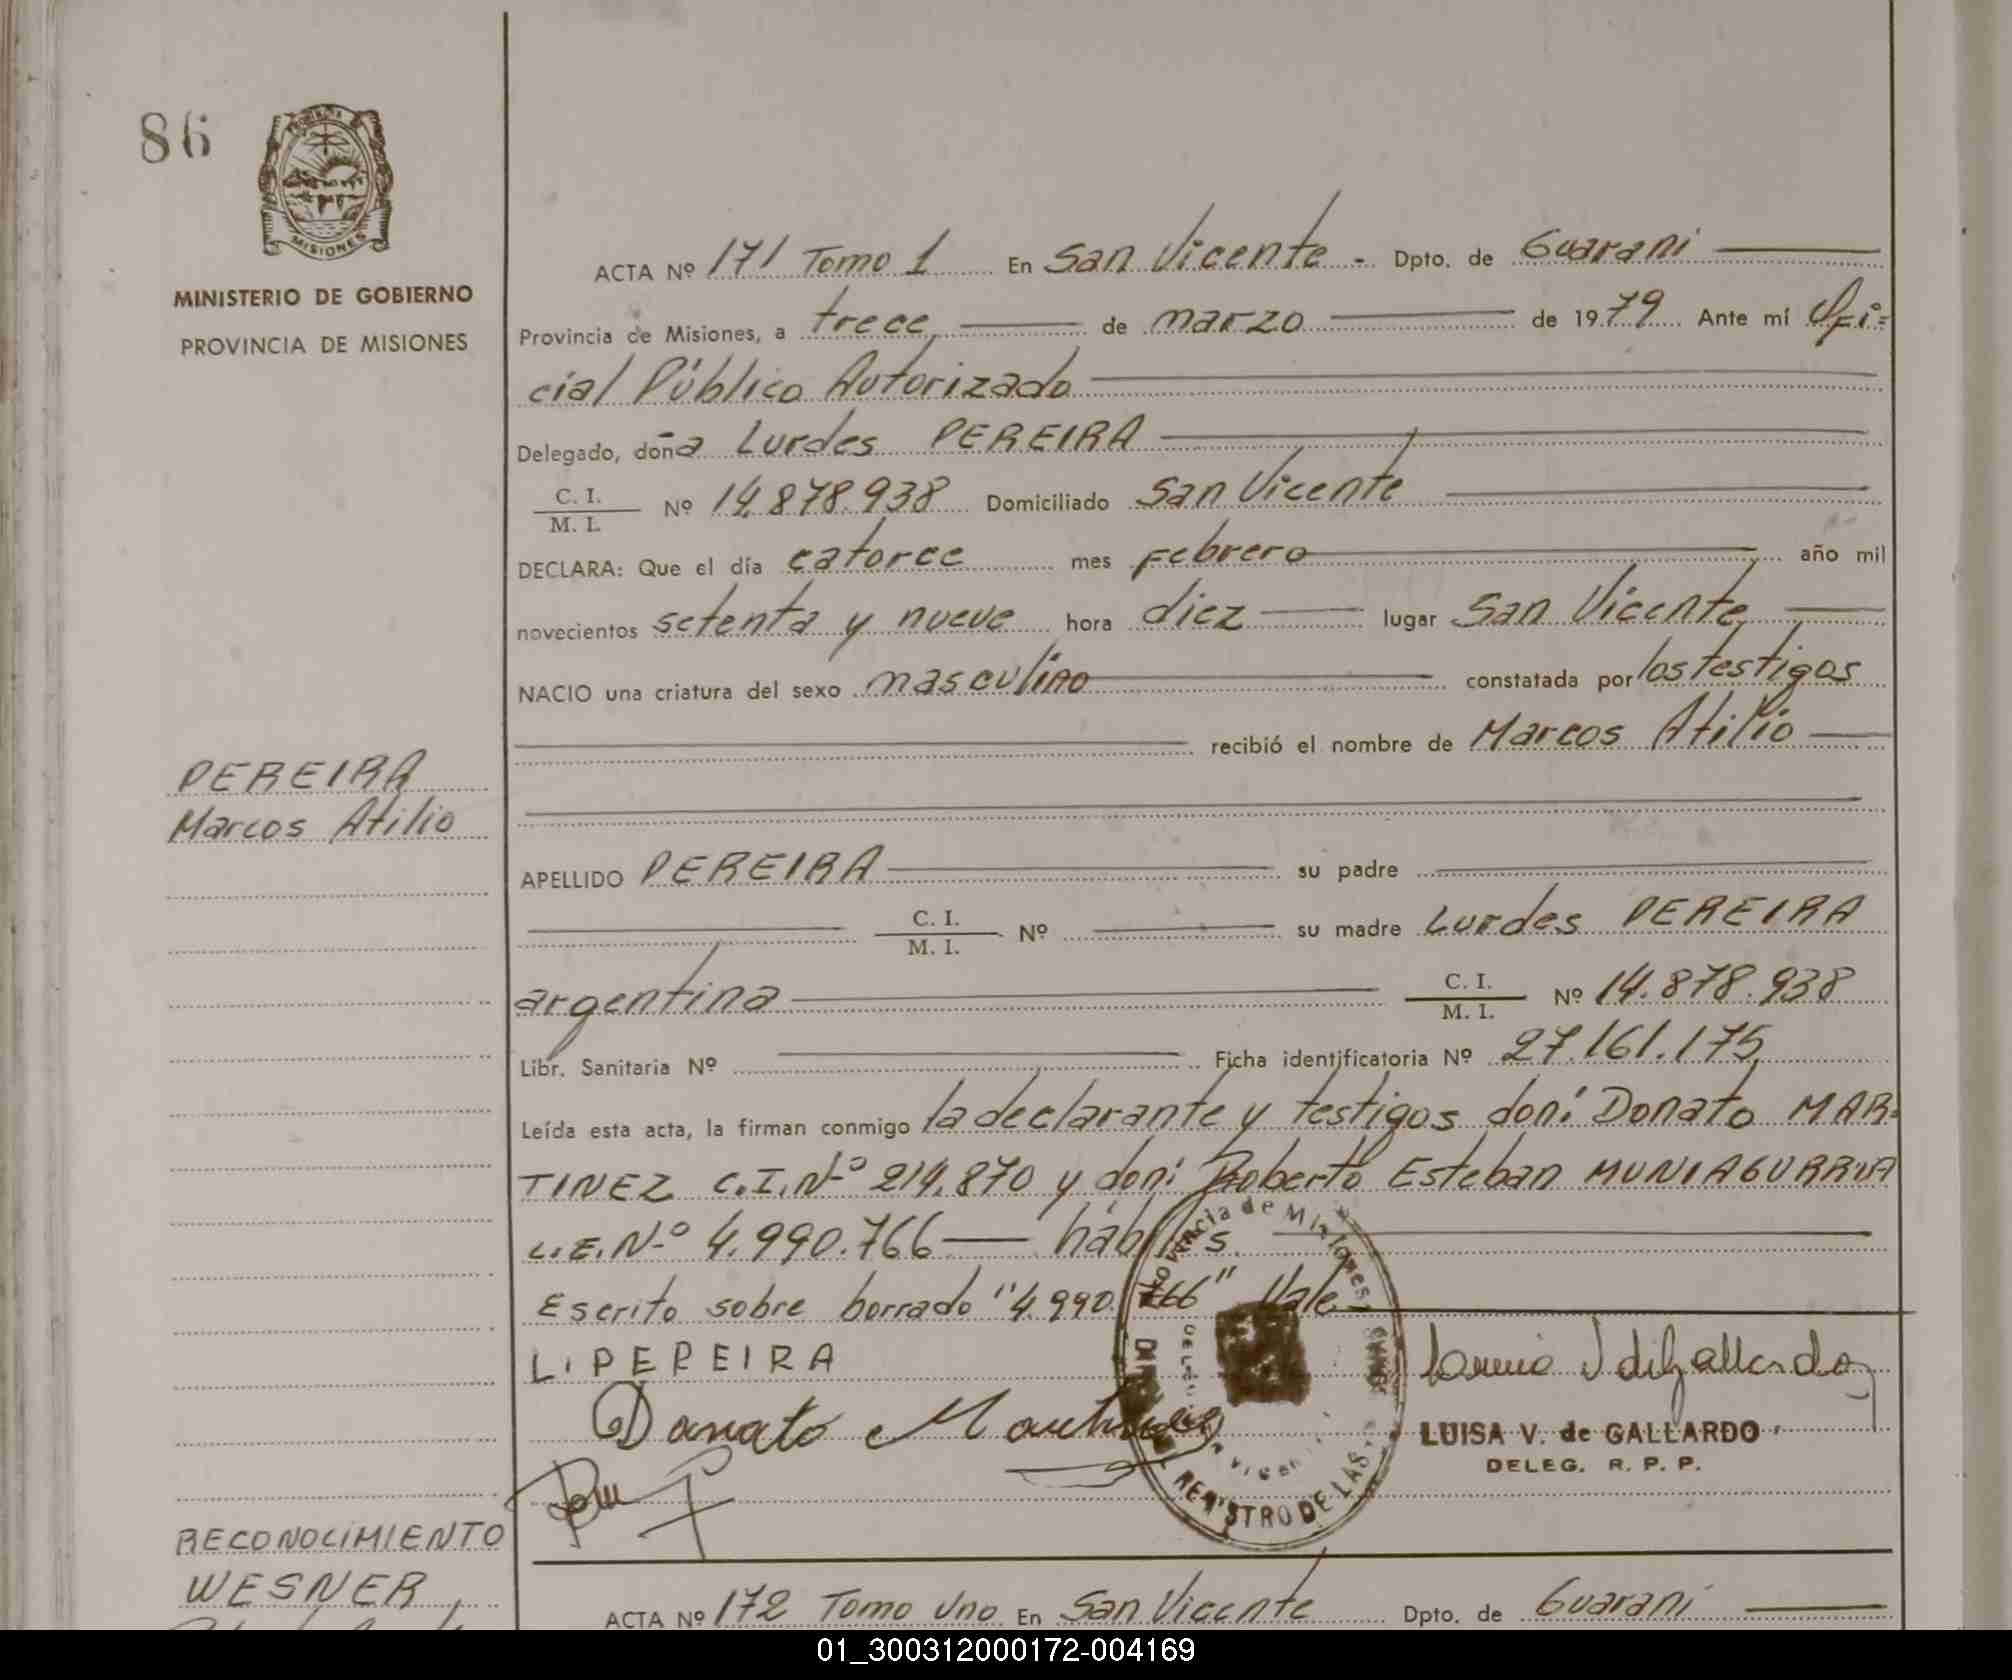 86
MISIONES
MINISTERIO DE GOBIERNO
PROVINCIA DE MISIONES
ACTA Nº 171 Tomo 1 En San Vicente - Dpto. de Guarani
Provincia de Misiones, a trece de marzo de 1979 Ante mí Ofi=
cial Público Autorizado
Delegado, doña Lurdes PEREIRA
C. I.
M. I. Nº 14.878.938 Domiciliado San Vicente
DECLARA: Que el día catorce mes Febrero año mil
novecientos setenta y nueve hora diez lugar San Vicente
NACIO una criatura del sexo masculino constatada por los testigos
recibió el nombre de Marcos Atilio
PEREIRA
Marcos Atilio
APELLIDO PEREIRA su padre
C. I.
M. I. Nº su madre Lurdes PEREIRA
argentina C. I.
M. I. Nº 14.878.938
Libr. Sanitaria Nº Ficha identificatoria Nº 27.161.175
Leída esta acta, la firman conmigo la declarante y testigos don: Donato MAR=
TINEZ C.I.Nº 214.870 y don: Roberto Esteban MUNIAGURRIA
L.E.Nº 4.990.766 — hábiles.
Escrito sobre borrado "4.990.766" Vale
L. PEREIRA
Donato Martinez
LUISA V. de GALLARDO
DELEG. R. P. P.
Provincia de Misiones
REGISTRO DE LAS
RECONOCIMIENTO
WESNER
ACTA Nº 172 Tomo Uno En San Vicente Dpto. de Guarani
01_300312000172-004169